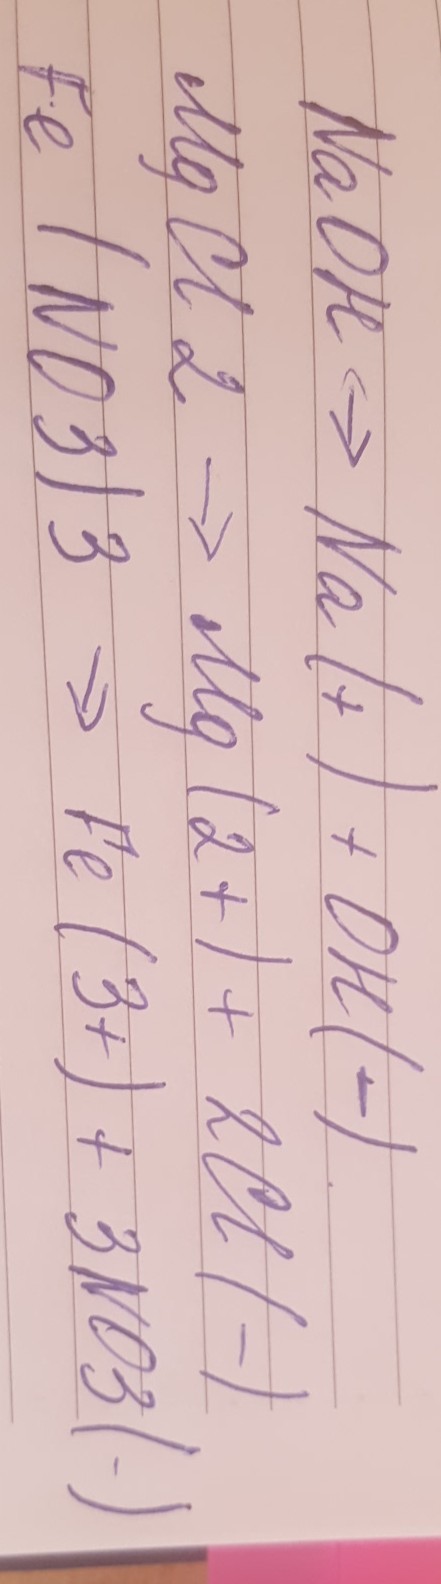 NaOH <-> Na (+) + OH (-)
MgCl2 -> Mg (2+) + 2Cl (-)
Fe (NO3)3 => Fe (3+) + 3NO3 (-)